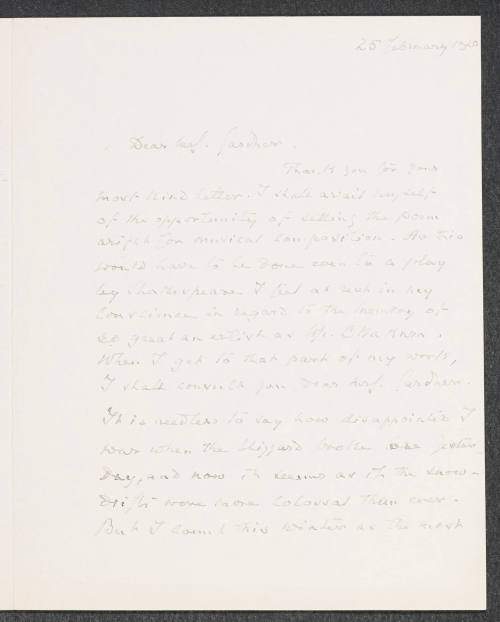 25 February 1920
Dear Mrs. Gardner.
Thank you for your
most kind letter. I shall avail myself
of the opportunity of setting the poem
aright for musical composition. As this
would have to be done even to a play
by Shakespeare I feel at rest in my
Conscience in regard to the memory of
so great an artist as Mr. Okakura.
When I get to that part of my work,
I shall consult you Dear Mrs. Gardner.
It is needless to say how disappointed I
was when the blizzard broke yester-
Day, and now it seems as if the snow-
drifts were more colossal than ever.
But I count this winter as the most